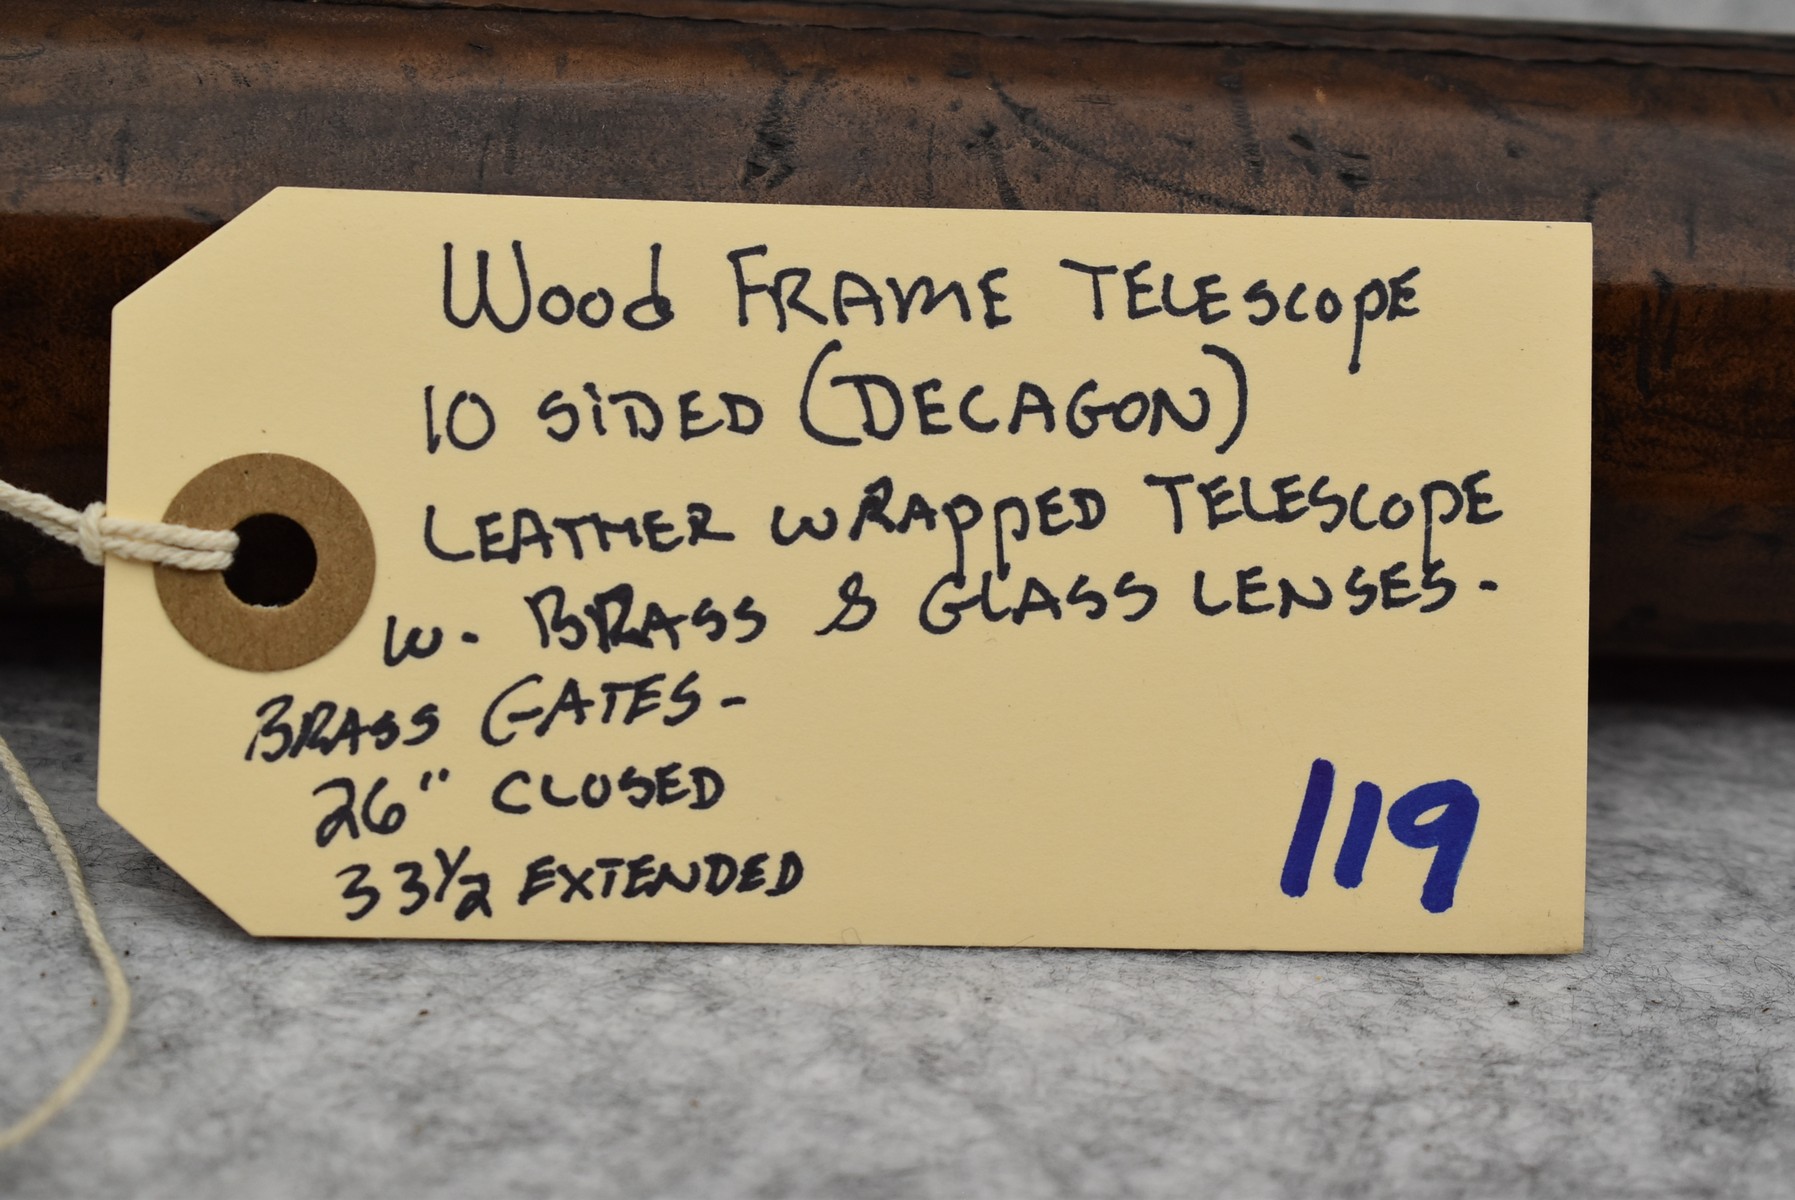 Wood FRAME TELEscopE
10 SiDED (DECAGON)
LEATHER WRAppED TELEScopE
w. BRASS & GLASS LENSES-
BRASS GATES-
26" CLOSED
33½ EXTENDED
119